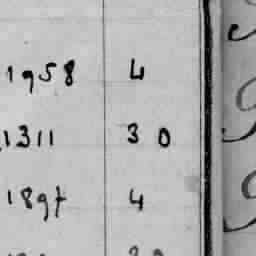 1958 4
1311 30
1897 4